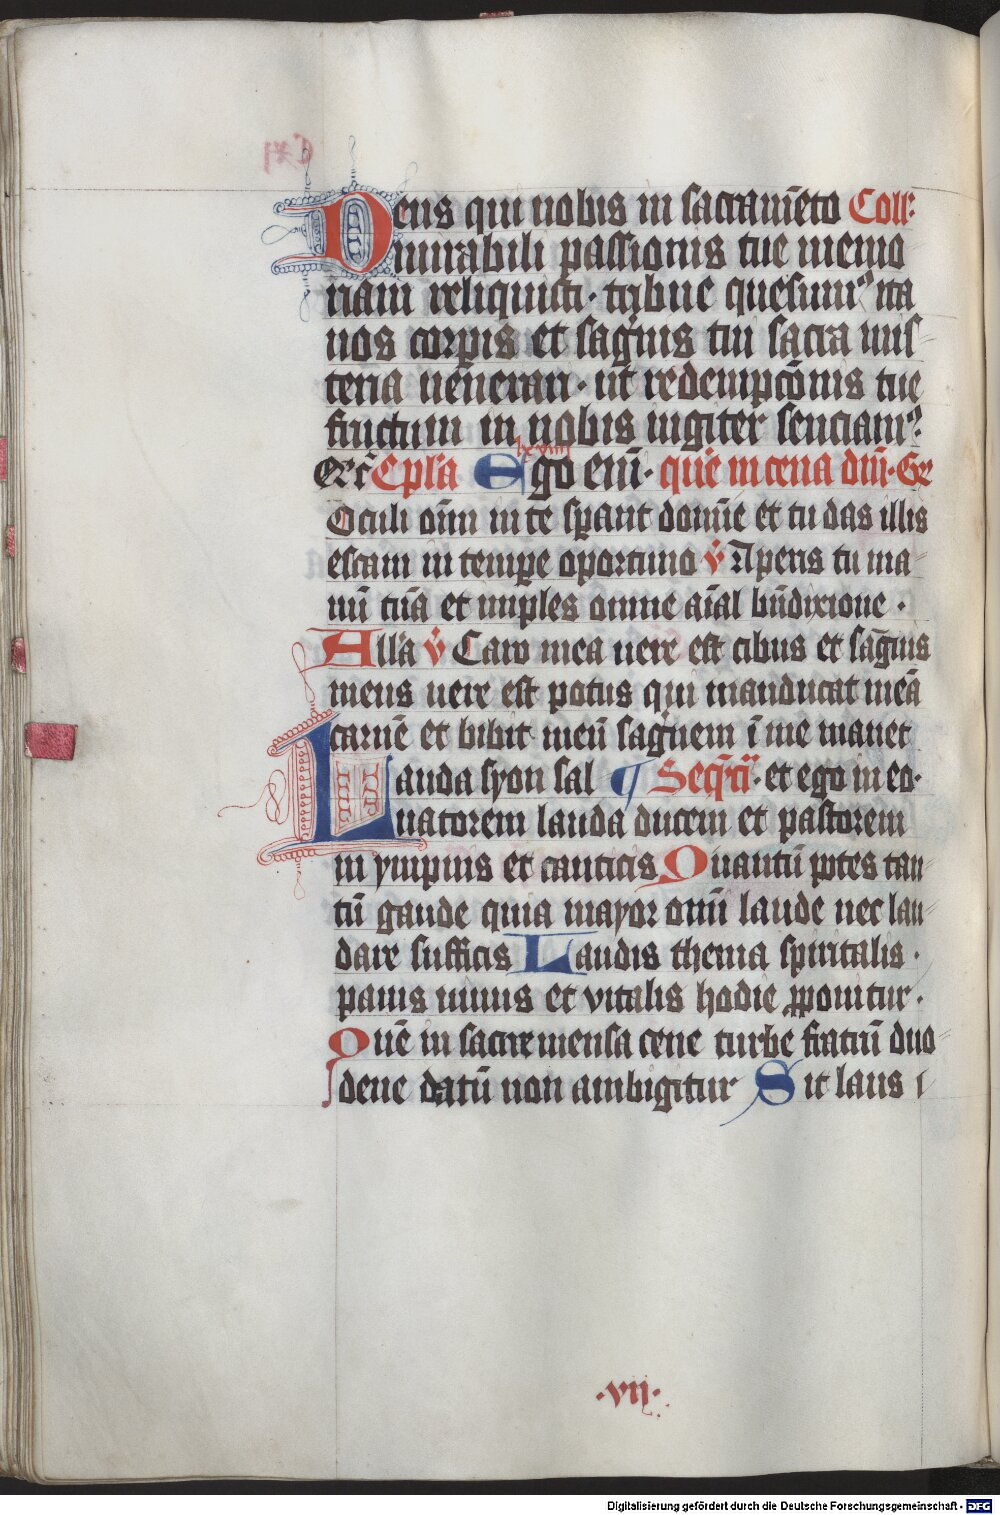 Deus qui nobis in sacramēto Coll:
mirabili passionis tue memo
riam reliquisti · tribue quesumꝰ ita
nos corpis et sāguis tui sacra mis-
teria uenerari · ut redempcōnis tue
fructum in nobis iugiter senciamꝰ.
Epl'a lxviiii Ego eni · que in cena dni · Gr
Oculi oīm in te sperant domīe et tu das illis
escam in tempe oportuno v̄ Aperis tu ma-
nū tuā et imples omne aīal bn̄dixione ·
All'a v̄ Caro mea uere est cibus et sāguis
meus uere est potus qui manducat meā
carnē et bibit meū sāguem ī me manet
Lauda syon sal ¶ Seq̄ncia · et ego in eo ·
uatorem lauda ducem et pastorem
in ympnis et canticis Quantū potes tan-
tū gaude quia mayor omī laude nec lau-
dare sufficis Laudis thema spiritalis ·
panis uiuus et vitalis hodie ꝓponitur ·
Quē in sacre mensa cene turbe fratrū duo
dene datū non ambigitur Sit laus
· vii ·
Digitalisierung gefördert durch die Deutsche Forschungsgemeinschaft - DFG